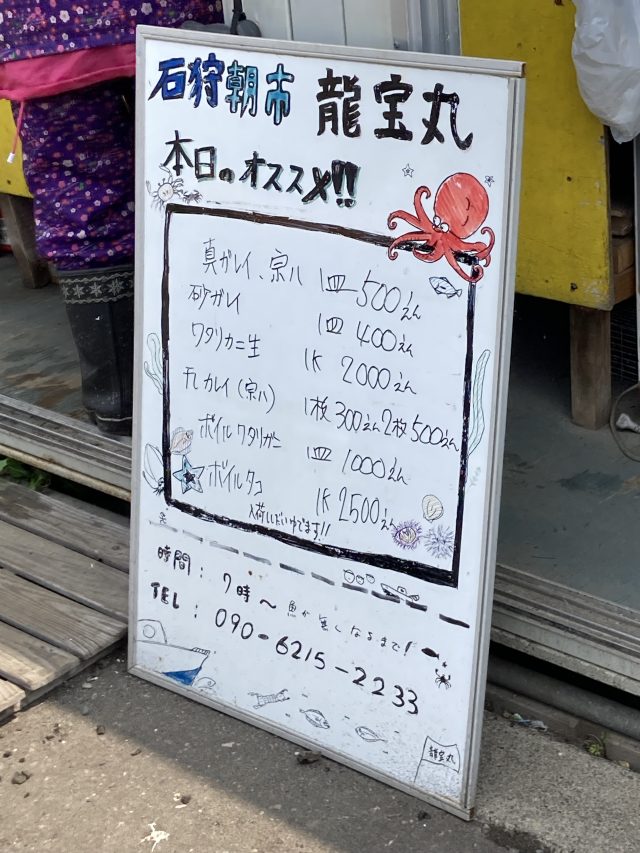 石狩朝市 龍宝丸
本日のオススメ!!
真ガレイ、宗八 1皿 500えん
砂ガレイ 1皿 400えん
ワタリカニ生 1K 2000えん
干しカレイ(宗八) 1枚300えん2枚500えん
ボイルワタリガニ 1皿 1000えん
ボイルタコ 1K 2500えん
入荷しだいゆでます!!
時間: 7時〜 魚が無しなるまで!
TEL: 090-6215-2233
龍宝丸